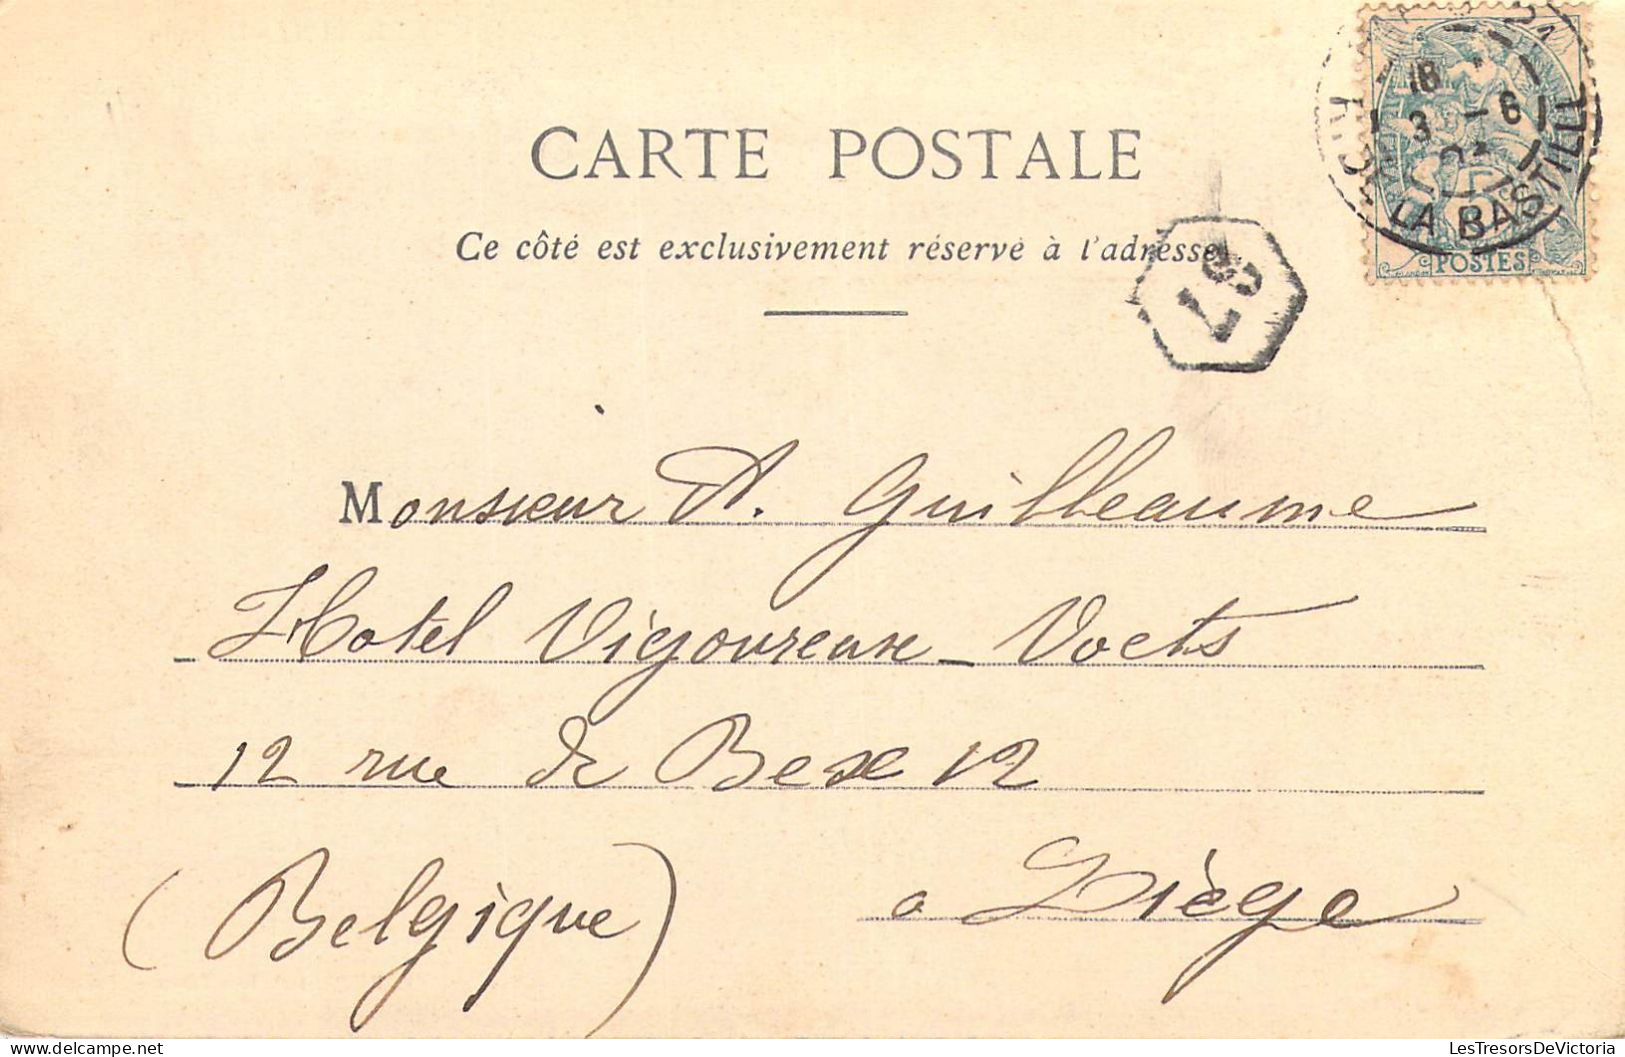 CARTE POSTALE
Ce côté est exclusivement réservé à l'adresse
37
18
3 - 6
LA BASTILLE
POSTES
Monsieur A. Guilleaume
Hotel Vigoureux - Voets
12 rue de Bex 12
à Liège
(Belgique)
LesTresorsDeVictoria.com